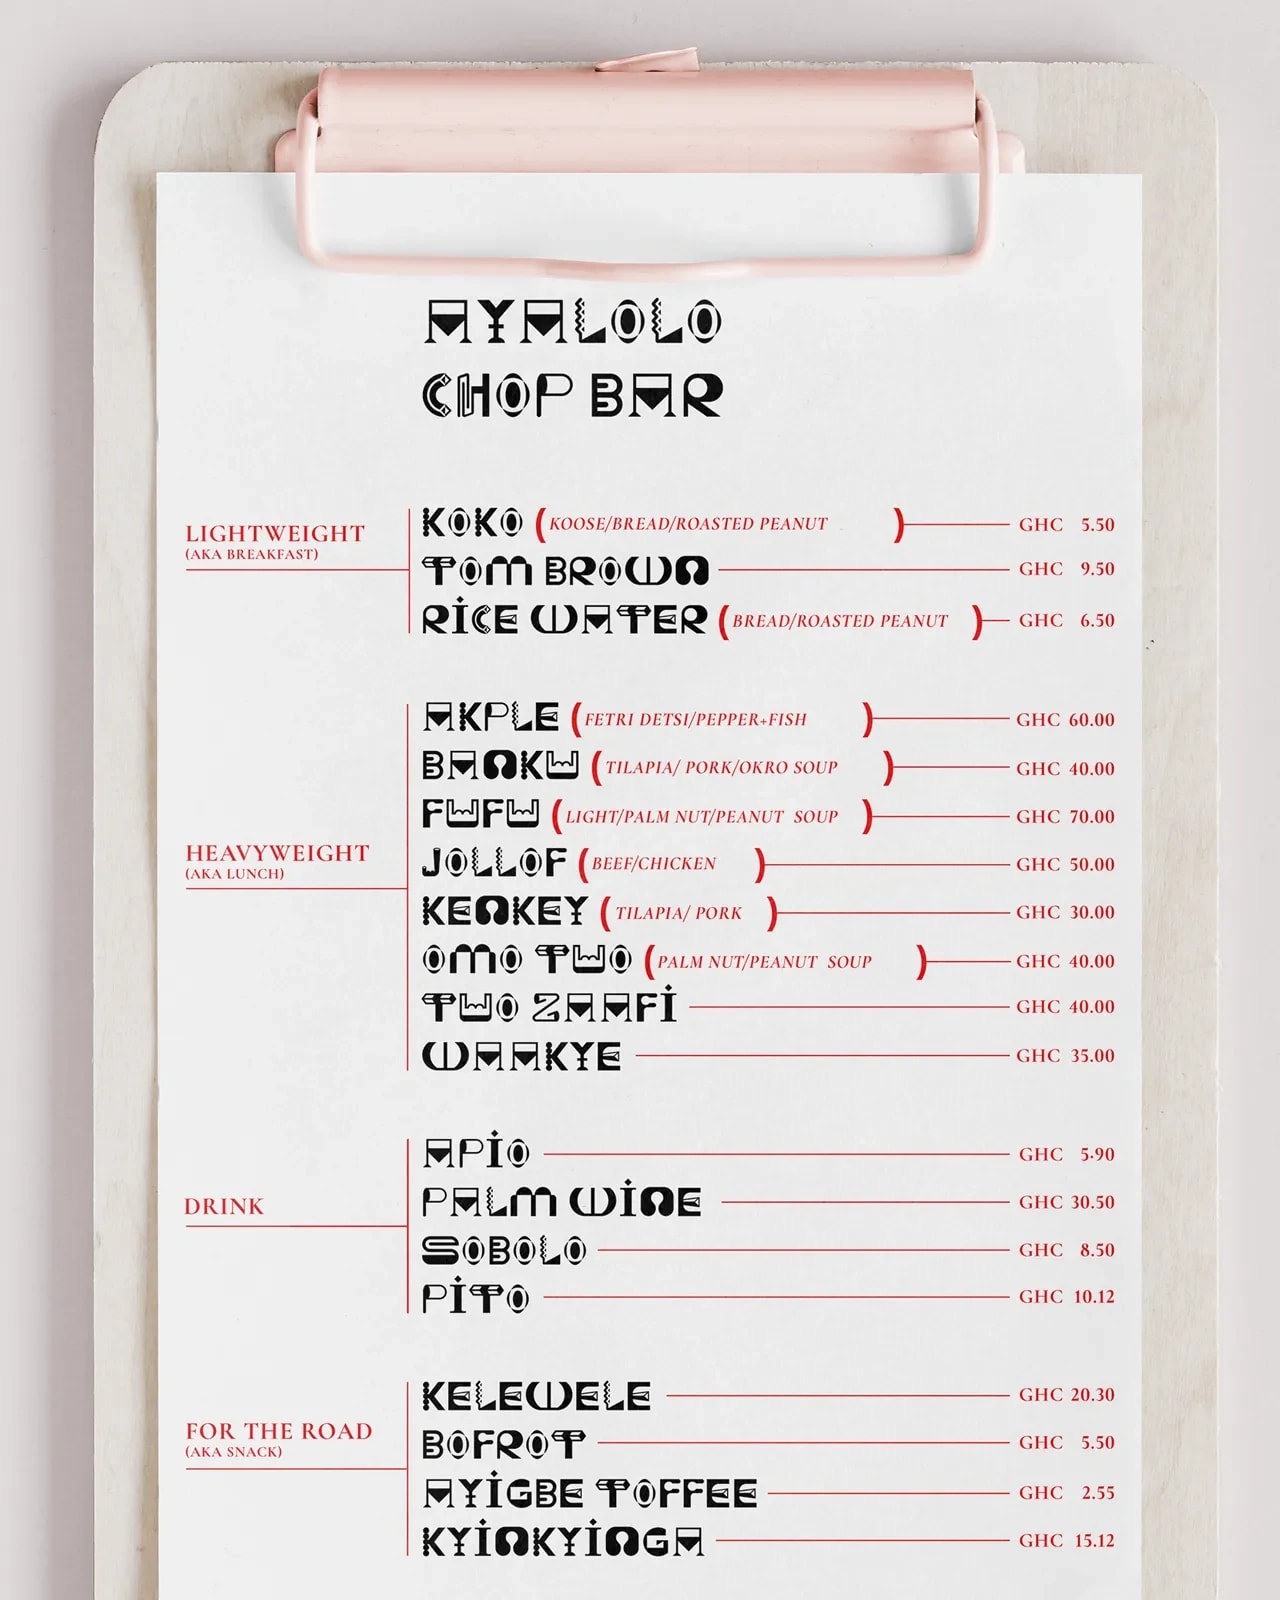 AYALOLO
CHOP BAR
LIGHTWEIGHT
(AKA BREAKFAST)
KOKO (KOOSE/BREAD/ROASTED PEANUT) GHC 5.50
TOM BROWN GHC 9.50
RICE WATER (BREAD/ROASTED PEANUT) GHC 6.50
HEAVYWEIGHT
(AKA LUNCH)
AKPLE (FETRI DETSI/PEPPER+FISH) GHC 60.00
BANKU (TILAPIA/ PORK/OKRO SOUP) GHC 40.00
FUFU (LIGHT/PALM NUT/PEANUT SOUP) GHC 70.00
JOLLOF (BEEF/CHICKEN) GHC 50.00
KENKEY (TILAPIA/ PORK) GHC 30.00
OMO TUO (PALM NUT/PEANUT SOUP) GHC 40.00
TUO ZAAFI GHC 40.00
WAAKYE GHC 35.00
DRINK
APIO GHC 5.90
PALM WINE GHC 30.50
SOBOLO GHC 8.50
PITO GHC 10.12
FOR THE ROAD
(AKA SNACK)
KELEWELE GHC 20.30
BOFROT GHC 5.50
AYIGBE TOFFEE GHC 2.55
KYINKYINGA GHC 15.12